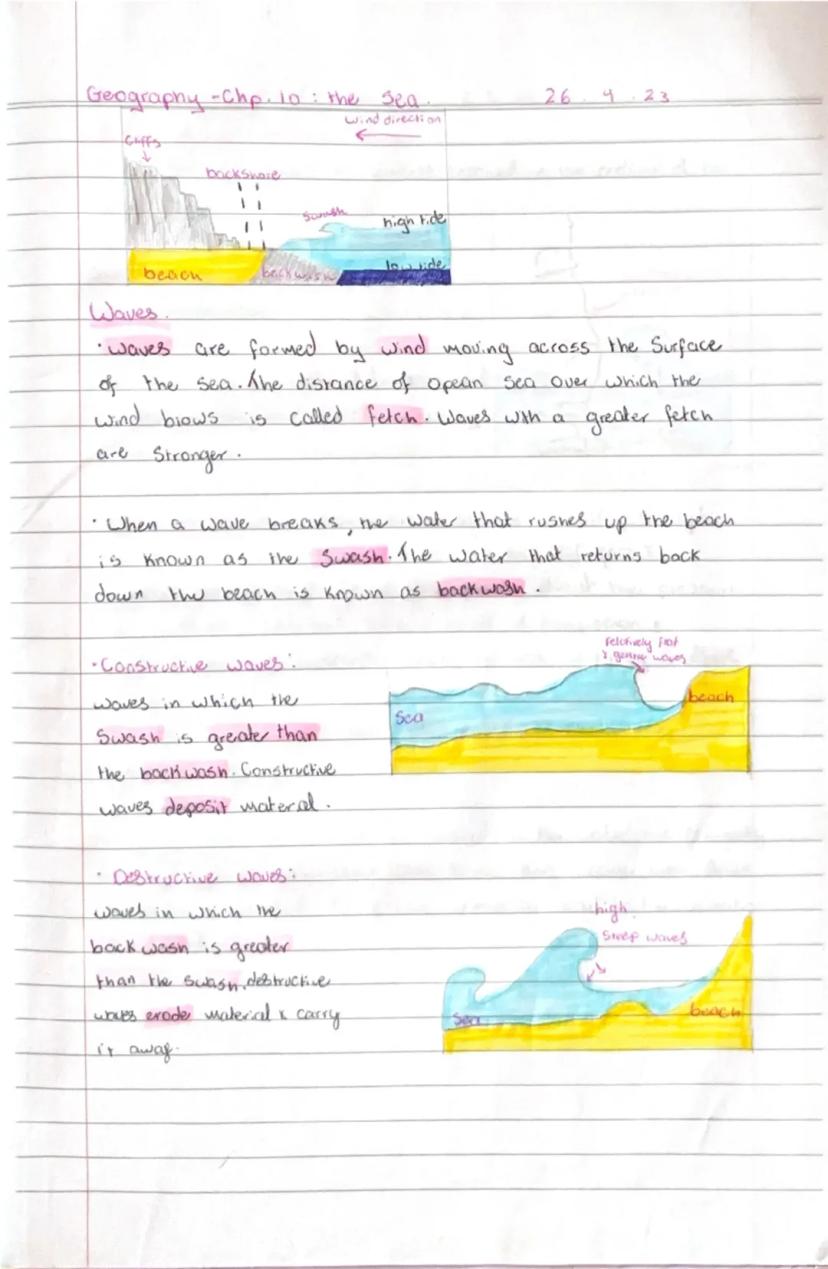 Geography - Chp. 10 : the Sea. 26 . 4 . 23
Wind direction
Cliffs
backshore
Swash
high tide
low tide
beach
backwash
Waves.
· Waves are formed by wind moving across the Surface
of the sea. The distance of opean sea over which the
wind blows is called fetch. Waves wth a greater fetch
are Stronger.
· When a wave breaks, the water that rushes up the beach
is known as the Swash. The water that returns back
down the beach is known as backwash.
relitively flat
& gentle waves
· Constructive waves:
waves in which the
Swash is greater than
the backwash. Constructive
waves deposit materal.
Sea
beach
· Destructive waves:
waves in which the
back wash is greater
than the swash, destructive
waves erode material & carry
it away.
high,
Steep waves
Sea
beach